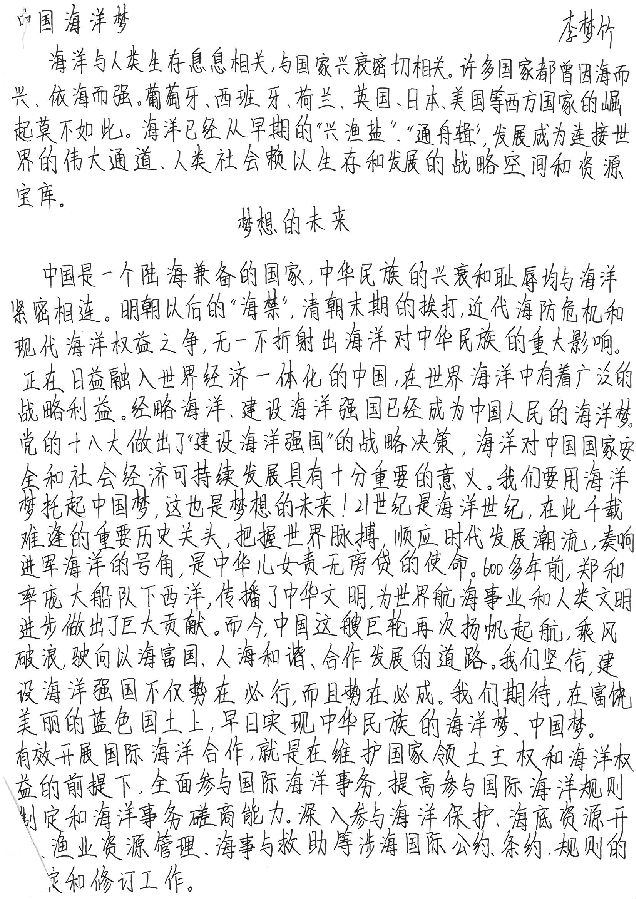 中国海洋梦
李梦竹
海洋与人类生存息息相关,与国家兴衰密切相关。许多国家都曾因海而
兴、依海而强。葡萄牙、西班牙、荷兰、英国、日本、美国等西方国家的崛
起莫不如此。海洋已经从早期的“兴渔盐”、“通舟楫”,发展成为连接世
界的伟大通道、人类社会赖以生存和发展的战略空间和资源
宝库。
梦想的未来
中国是一个陆海兼备的国家,中华民族的兴衰和耻辱均与海洋
紧密相连。明朝以后的“海禁”,清朝末期的挨打,近代海防危机和
现代海洋权益之争,无一不折射出海洋对中华民族的重大影响。
正在日益融入世界经济一体化的中国,在世界海洋中有着广泛的
战略利益。经略海洋、建设海洋强国已经成为中国人民的海洋梦。
党的十八大做出了“建设海洋强国”的战略决策,海洋对中国国家安
全和社会经济可持续发展具有十分重要的意义。我们要用海洋
梦托起中国梦,这也是梦想的未来!21世纪是海洋世纪,在此千载
难逢的重要历史关头,把握世界脉搏,顺应时代发展潮流,奏响
进军海洋的号角,是中华儿女责无旁贷的使命。600多年前,郑和
率庞大船队下西洋,传播了中华文明,为世界航海事业和人类文明
进步做出了巨大贡献。而今,中国这艘巨轮再次扬帆起航,乘风
破浪,驶向以海富国、人海和谐、合作发展的道路。我们坚信,建
设海洋强国不仅势在必行,而且势在必成。我们期待,在富饶
美丽的蓝色国土上,早日实现中华民族的海洋梦、中国梦。
有效开展国际海洋合作,就是在维护国家领土主权和海洋权
益的前提下,全面参与国际海洋事务,提高参与国际海洋规则
制定和海洋事务磋商能力。深入参与海洋保护、海底资源开
、渔业资源管理、海事与救助等涉海国际公约、条约、规则的
定和修订工作。